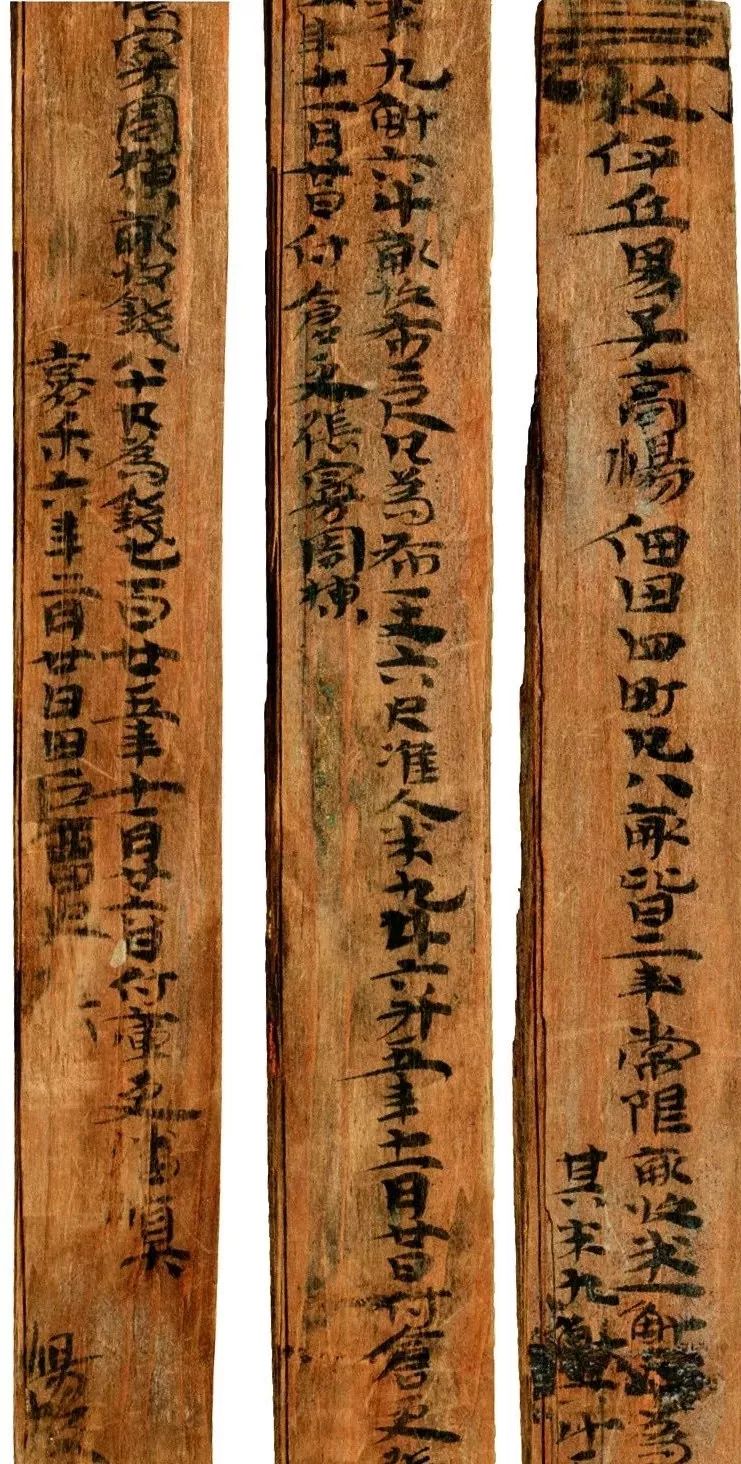 伻丘男子高楊佃田四町凡八畝皆二年常限畝收米一斛為
其米九斛
米九斛六斗畝收布二尺凡為布一丈六尺准入米九斗六升五年十二月廿日付倉吏張
年十二月廿日付倉吏張曼周棟
曼周棟畝收錢八十凡為錢七百廿五年十二月廿日付庫吏潘慎
嘉禾六年二月廿日田戶曹史